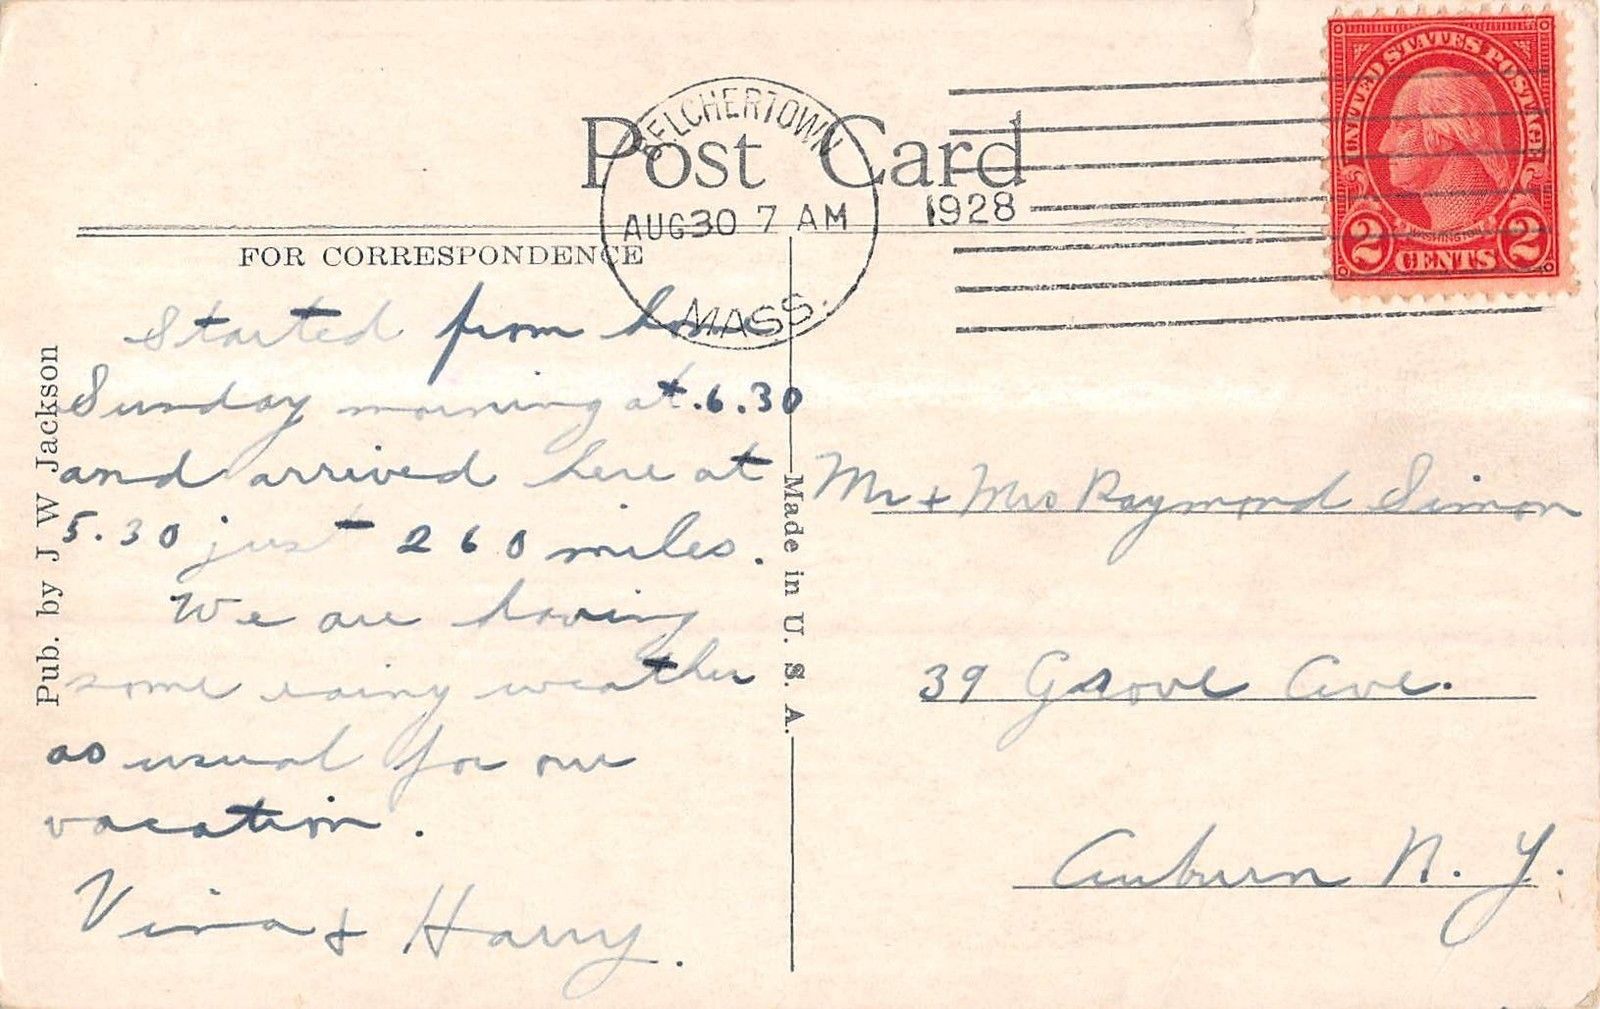 UNITED STATES POSTAGE
WASHINGTON
2 CENTS 2
BELCHERTOWN
AUG 30 7 AM
1928
MASS.
Post Card
FOR CORRESPONDENCE
Started from home
Sunday morning at 6.30
and arrived here at
5.30 just 260 miles.
We are having
some rainy weather
as usual for our
vacation.
Vina & Harry.
Pub. by J W Jackson
Made in U. S. A.
Mr + Mrs Raymond Simon
39 Grove Ave.
Auburn N. Y.